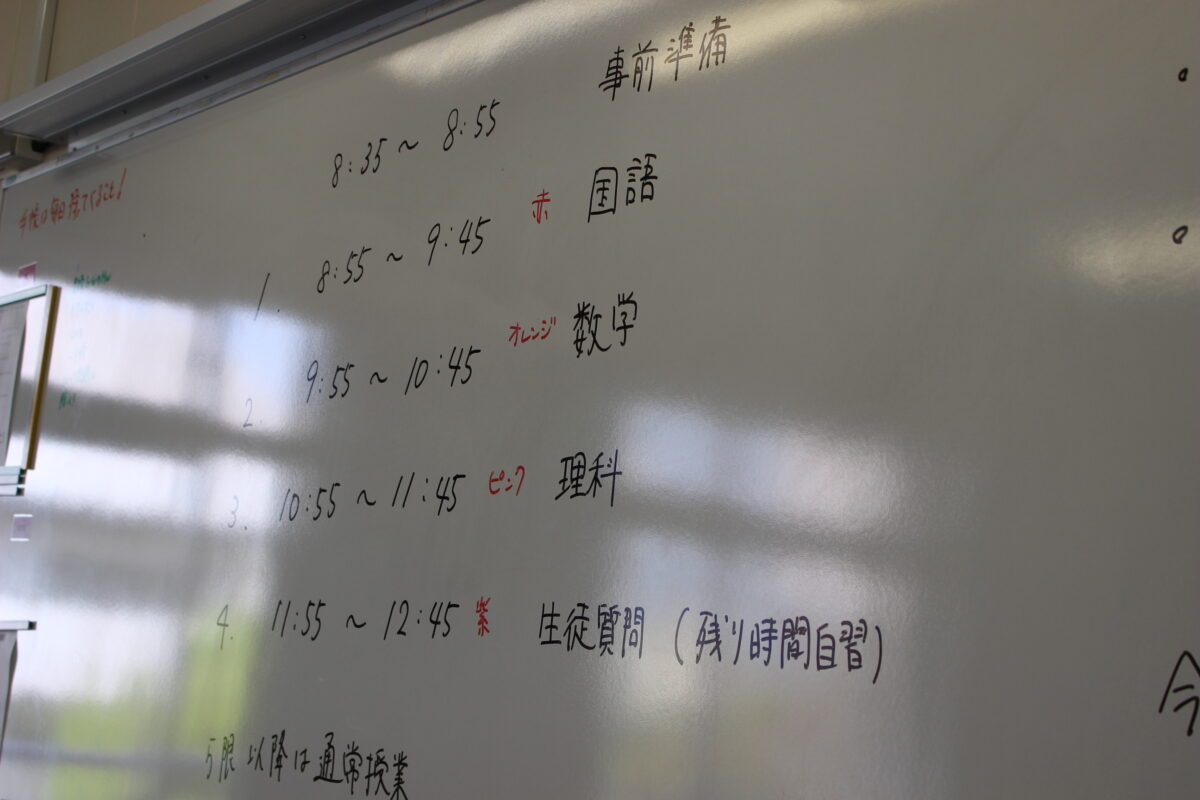 事前準備
8:35 ~ 8:55
1. 8:55 ~ 9:45 赤 国語
2. 9:55 ~ 10:45 オレンジ 数学
3. 10:55 ~ 11:45 ピンク 理科
4. 11:55 ~ 12:45 紫 生徒質問 (残り時間自習)
5限以降は通常授業
今